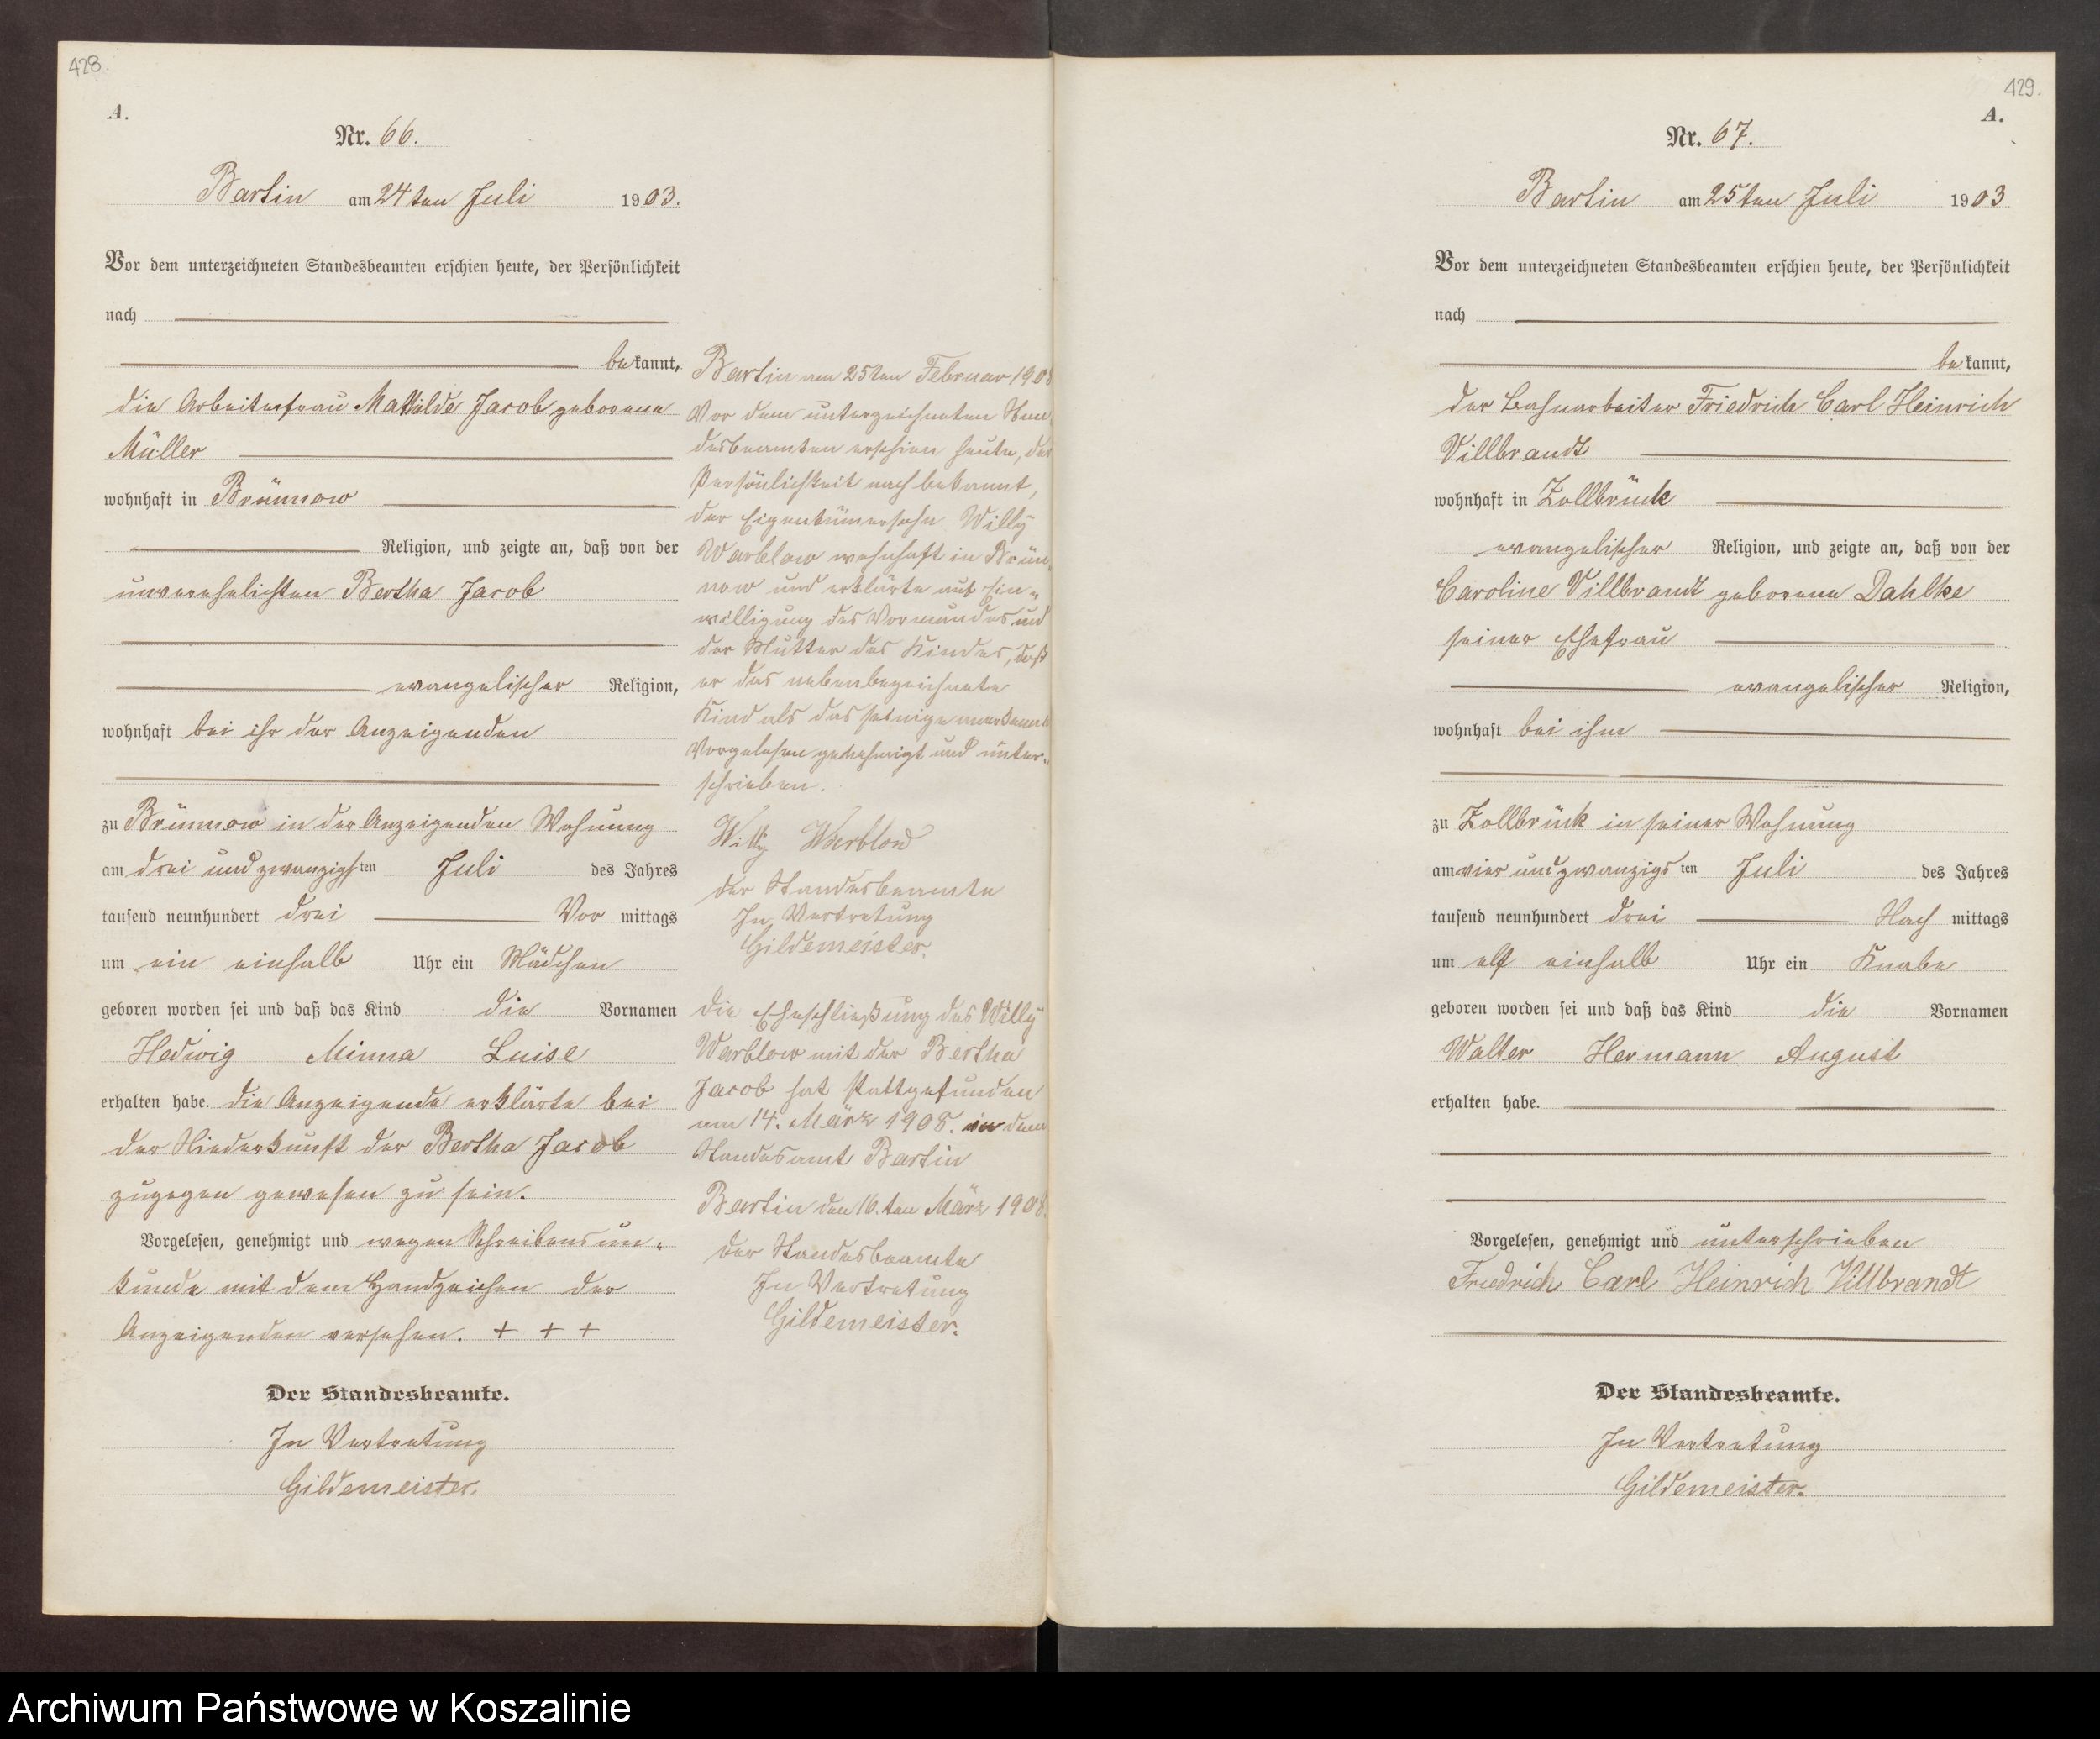 428.
A.
Nr. 66.
Bartin am 24ten Juli 1903.
Vor dem unterzeichneten Standesbeamten erschien heute, der Persönlichkeit
nach
bekannt,
die Arbeiterfrau Mathilde Jacob geborene
Müller
wohnhaft in Brünnow
Religion, und zeigte an, daß von der
unverehelichten Bertha Jacob
evangelischer Religion,
wohnhaft bei ihr der Anzeigenden
zu Brünnow in der Anzeigenden Wohnung
am drei und zwanzigsten Juli des Jahres
tausend neunhundert drei Vor mittags
um ein einhalb Uhr ein Mädchen
geboren worden sei und daß das Kind die Vornamen
Hedwig Minna Luise
erhalten habe. Die Anzeigende erklärte bei
der Niederkunft der Bertha Jacob
zugegen gewesen zu sein.
Vorgelesen, genehmigt und wegen Schreibensun-
kunde mit dem Handzeichen der
Anzeigenden versehen. + + +
Der Standesbeamte.
In Vertretung
Gildemeister.
Bartin am 25ten Februar 1908
Vor dem unterzeichneten Stan
desbeamten erschien heute, der
Persönlichkeit nach bekannt,
der Eigentümersohn Willy
Warblow wohnhaft in Brün
now und erklärte mit Ein-
willigung des Vormundes und
der Mutter des Kindes, daß
er das nebenbezeichnete
Kind als das seinige anerkennt
Vorgelesen genehmigt und unter-
schrieben.
Willy Warblow
Der Standesbeamte
In Vertretung
Gildemeister.
Die Eheschließung des Willy
Warblow mit der Bertha
Jacob hat stattgefunden
am 14. März 1908. in dem
Standesamt Bartin
Bartin den 16.ten März 1908.
Der Standesbeamte
In Vertretung
Gildemeister.
429.
A.
Nr. 67.
Bartin am 25ten Juli 1903
Vor dem unterzeichneten Standesbeamten erschien heute, der Persönlichkeit
nach
bekannt,
der Bahnarbeiter Friedrich Carl Heinrich
Villbrandt
wohnhaft in Zollbrück
evangelischer Religion, und zeigte an, daß von der
Caroline Villbrandt geborene Dahlke
seiner Ehefrau
evangelischer Religion,
wohnhaft bei ihm
zu Zollbrück in seiner Wohnung
am vier und zwanzigsten Juli des Jahres
tausend neunhundert drei Nach mittags
um elf einhalb Uhr ein Knabe
geboren worden sei und daß das Kind die Vornamen
Walter Hermann August
erhalten habe.
Vorgelesen, genehmigt und unterschrieben
Friedrich Carl Heinrich Villbrandt
Der Standesbeamte.
In Vertretung
Gildemeister.
Archiwum Państwowe w Koszalinie